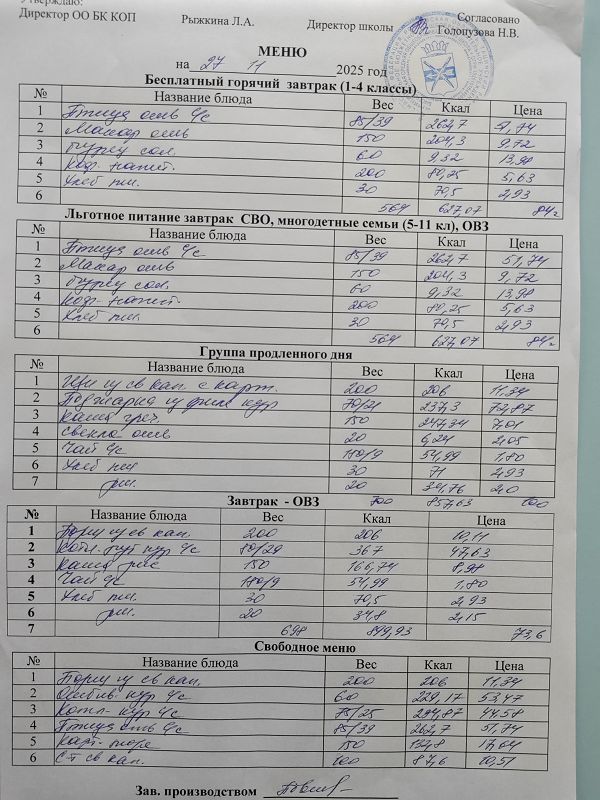 Утверждаю:
Директор ОО БК КОП Рыжкина Л.А. Директор школы Согласовано Голопузова Н.В.
МЕНЮ
на 27 11 2025 год
Бесплатный горячий завтрак (1-4 классы)
№ Название блюда Вес Ккал Цена
1 Птица отв ч/с 85/39 262,7 51,74
2 Макар отв 150 204,3 9,72
3 Огурец сол. 60 9,32 13,98
4 Коф. напит. 200 80,25 5,63
5 Хлеб пш. 30 70,5 2,93
6 564 627,07 84
Льготное питание завтрак СВО, многодетные семьи (5-11 кл), ОВЗ
№ Название блюда Вес Ккал Цена
1 Птица отв ч/с 85/39 262,7 51,74
2 Макар отв 150 204,3 9,72
3 Огурец сол. 60 9,32 13,98
4 Коф. напит. 200 80,25 5,63
5 Хлеб пш. 30 70,5 2,93
6 564 627,07 84
Группа продленного дня
№ Название блюда Вес Ккал Цена
1 Щи из св кап с карт. 200 206 11,34
2 Поджарка из филе кур 70/21 237,3 72,87
3 Каша греч. 150 247,34 7,01
4 Свекла отв 20 6,24 2,05
5 Чай ч/с 180/9 54,99 1,80
6 Хлеб пш 30 71 2,93
7 рж. 20 34,76 2,0
700 857,63 100
Завтрак - ОВЗ
№ Название блюда Вес Ккал Цена
1 Борщ из св кап. 200 206 10,11
2 Котл. руб кур ч/с 80/29 367 47,63
3 Каша рис 150 166,74 8,98
4 Чай ч/с 180/9 54,99 1,80
5 Хлеб пш. 30 70,5 2,93
6 рж. 20 34,8 2,15
7 698 899,93 73,6
Свободное меню
№ Название блюда Вес Ккал Цена
1 Борщ из св кап. 200 206 11,34
2 кур ч/с 60 229,17 53,47
3 Котл. кур ч/с 75/25 294,87 44,58
4 Птица отв ч/с 85/39 262,7 51,74
5 Карт. пюре 150 132,8 17,04
6 С-т св кап. 100 87,6 10,51
Зав. производством